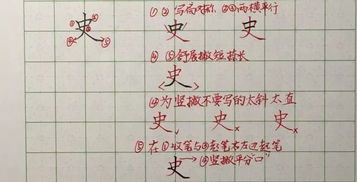 史 ①②写局对称 ②③两横平行
史 史
④⑤舒展撇短捺长
史
④为竖撇不要写的太斜太直
史 史× 史×
⑤在①收笔与③起笔右左边起笔
史 ④竖撇平分"口"